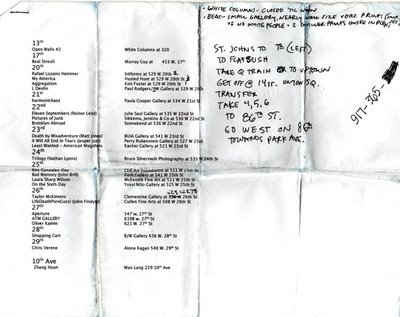 • WHITE COLUMNS - CLOSED 'TIL NOON
• BEAS - SMALL GALLERY, NEARLY WALL SIZE
OF NO WHITE PEOPLE - 2 SMALLER PRINTS
ST. JOHNS TO 7th (LEFT)
TO FLATBUSH
TAKE Q TRAIN TO UPTOWN
GET OFF @ 14 ST. UNION SQ.
TRANSFER
TAKE 4,5,6
TO 86th ST
GO WEST ON 86th
TOWARDS PARK AVE.
917-365-
13th
Open Walls #2 White Columns at 320
17th
Beat Streuli Murray Guy at 453 W. 17th
20th
Rafael Lozano Hemmer bitforms at 529 W 20th 2
My America Hosted at 529 W 20th St 3
Aggregation Kim Foster at 529 W 20th St
L Devlin Paul Rodgers/9W Gallery at 529 W 20th
21st
harmonichaos Paula Cooper Gallery at 534 W 21st St
22nd
Eleven September (Reiner Leist) Julie Saul Gallery at 535 W 22nd St
Pictures of Junk Sikkema, Jenkins & Co at 530 W 22nd St
Brooklyn Abroad Schroeder at 536 W 22nd St
23rd
Death by Misadventure (Matt Jones) BUIA Gallery at 541 W 23rd St
It Will All End in Tears (Jesper Just) Perry Rubenstein Gallery at 527 W 23rd
Least Wanted - American Mugshots Kasher Gallery at 521 W 23rd St
24th
Trilogy (Nathan Lyons) Bruce Silverstein Photography at 535 W 24th St
25th
Ken Gonzales-Day CUE Art Foundation at 511 W 25th St
Bad Memory (John Brill) Kent Gallery at 541 W 25th St
Laura Sharp Wilson McKenzie Fine Art at 511 W 25th St
On the Sixth Day Yossi Milo Gallery at 525 W 25th St
26th
Taylor McKimens Clementine Gallery at W 26th St
LifeDeathPorn(Love) (John Findysz) Cullen Fine Arts at 508 W 26th St
27th
Aperture 547 w. 27th St
ATM GALLERY 619B w. 27th St
Oliver Kamm 621 W. 27th St
28th
Shopping Cart R/W Gallery 636 W. 28th St
29th
Chris Verene Alona Kagan 540 W. 29th St
10th Ave
Zhang Huan Max Lang 229 10th Ave